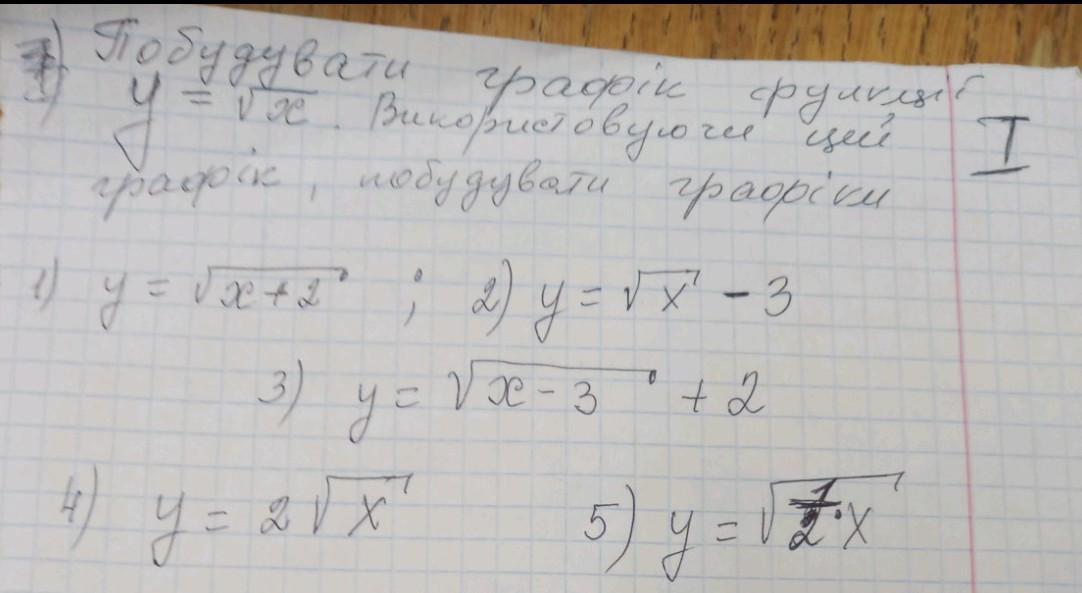 Побудувати графік функції
y = √x . Використовуючи цей
графік, побудувати графіки
I
1) y = √x+2 ; 2) y = √x - 3
3) y = √x-3 + 2
4) y = 2√x 5) y = √½·x